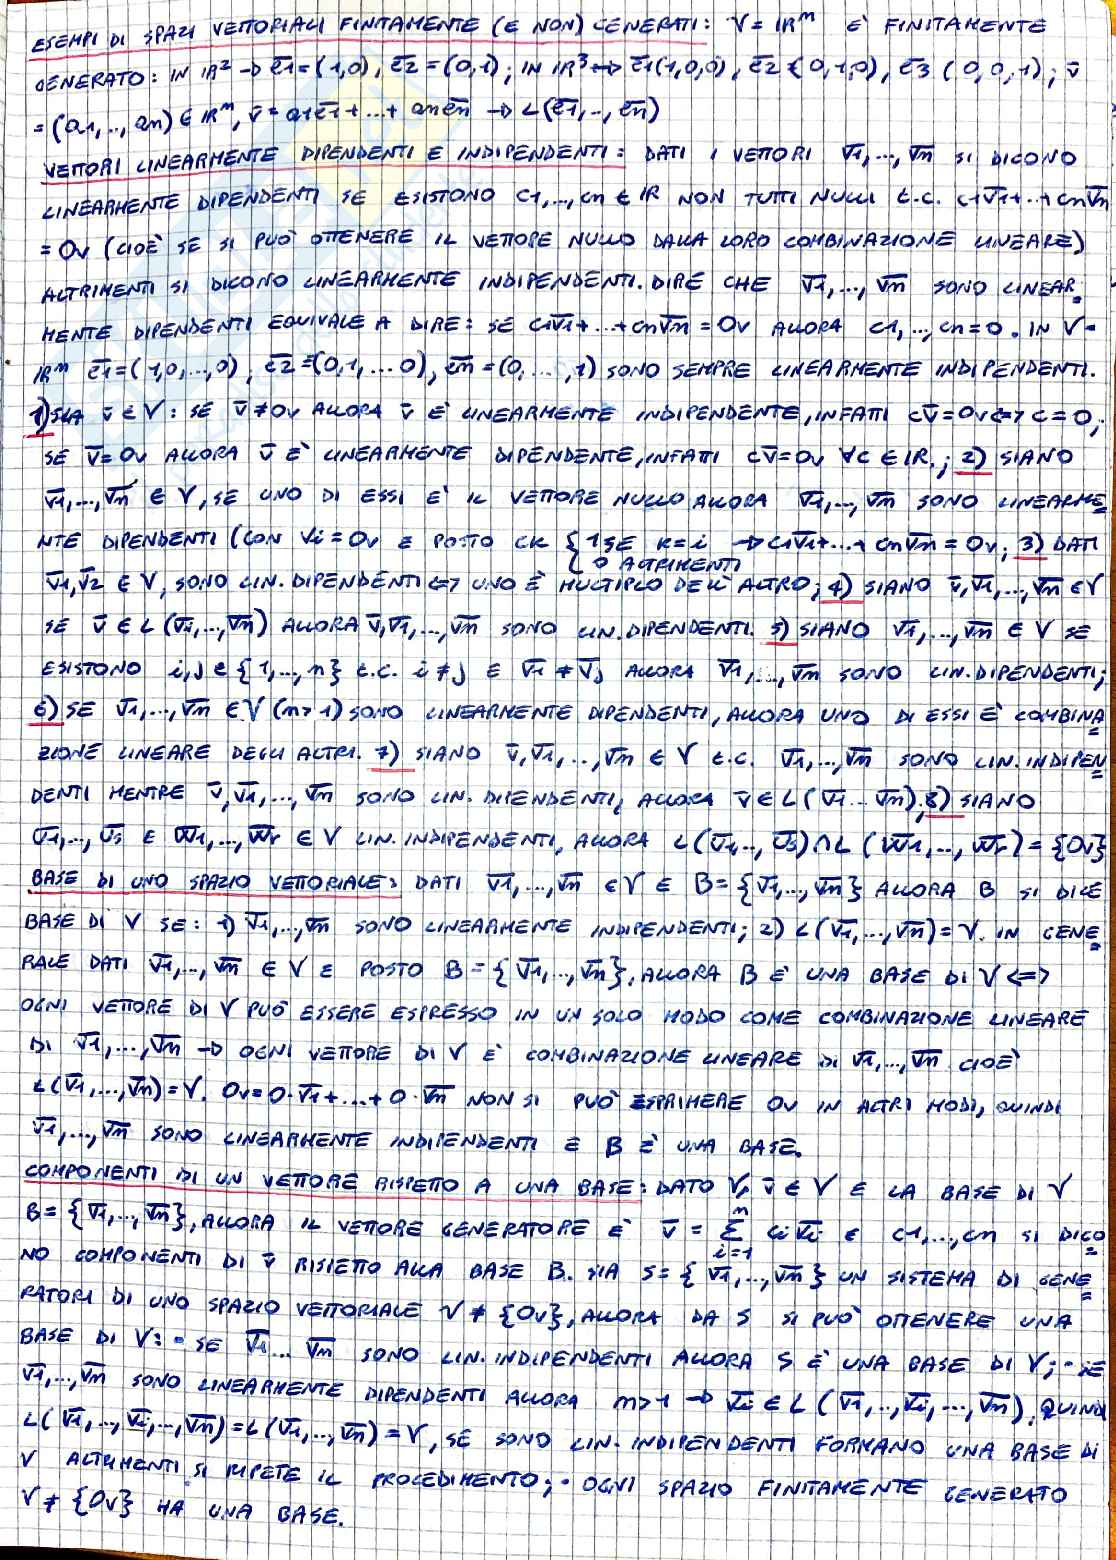 ESEMPI DI SPAZI VETTORIALI FINITAMENTE (E NON) GENERATI: V = ℝᵐ E' FINITAMENTE
GENERATO: IN ℝ² → e̅1=(1,0), e̅2=(0,1); IN ℝ³ → e̅1(1,0,0), e̅2(0,1,0), e̅3(0,0,1); v̅
= (a1,..,an) ∈ ℝᵐ, v̅ = a1e̅1+...+ane̅n → L(e̅1,..,e̅n)
VETTORI LINEARMENTE DIPENDENTI E INDIPENDENTI: DATI I VETTORI v̅1,...,v̅n SI DICONO
LINEARMENTE DIPENDENTI SE ESISTONO c1,..,cn ∈ ℝ NON TUTTI NULLI t.c. c1v̅1+..+cnv̅n
= 0v (CIOÈ SE SI PUÒ OTTENERE IL VETTORE NULLO DALLA LORO COMBINAZIONE LINEARE)
ALTRIMENTI SI DICONO LINEARMENTE INDIPENDENTI. DIRE CHE v̅1,...,v̅n SONO LINEAR
MENTE DIPENDENTI EQUIVALE A DIRE: SE c1v̅1+...+cnv̅n = 0v ALLORA c1,..,cn=0. IN V=
ℝᵐ e̅1=(1,0,..,0), e̅2=(0,1,...0), e̅n=(0,...,1) SONO SEMPRE LINEARMENTE INDIPENDENTI.
1) SIA v̅ ∈ V: SE v̅ ≠ 0v ALLORA v̅ E' LINEARMENTE INDIPENDENTE, INFATTI cv̅=0v <=> c=0;
SE v̅=0v ALLORA v̅ E' LINEARMENTE DIPENDENTE, INFATTI cv̅=0v ∀c ∈ ℝ.; 2) SIANO
v̅1,...,v̅n ∈ V, SE UNO DI ESSI E' IL VETTORE NULLO ALLORA v̅1,..,v̅n SONO LINEARME
NTE DIPENDENTI (CON vi=0v E POSTO ck { 1 SE k=i → c1v̅1+...+cnv̅n=0v; 3) DATI
0 ALTRIMENTI
v̅1,v̅2 ∈ V, SONO LIN. DIPENDENTI <=> UNO È MULTIPLO DELL'ALTRO; 4) SIANO v̅,v̅1,...,v̅n ∈ V
SE v̅ ∈ L(v̅1,...,v̅n) ALLORA v̅,v̅1,...,v̅n SONO LIN. DIPENDENTI. 5) SIANO v̅1,...,v̅n ∈ V SE
ESISTONO i,j ∈ {1,...,n} t.c. i≠j E v̅i ≠ v̅j ALLORA v̅1,...,v̅n SONO LIN. DIPENDENTI;
6) SE v̅1,...,v̅n ∈ V (n>1) SONO LINEARMENTE DIPENDENTI, ALLORA UNO DI ESSI E' COMBINA
ZIONE LINEARE DEGLI ALTRI. 7) SIANO v̅,v̅1,..,v̅n ∈ V t.c. v̅1,...,v̅n SONO LIN. INDIPEN
DENTI MENTRE v̅,v̅1,...,v̅n SONO LIN. DIPENDENTI, ALLORA v̅ ∈ L(v̅1...v̅n). 8) SIANO
u̅1,..,u̅s E w̅1,...,w̅r ∈ V LIN. INDIPENDENTI, ALLORA L(u̅1,..,u̅s) ∩ L(w̅1,...,w̅r) = {0v}
BASE DI UNO SPAZIO VETTORIALE: DATI v̅1,...,v̅n ∈ V E B={v̅1,...,v̅n} ALLORA B SI DICE
BASE DI V SE: 1) v̅1,..,v̅n SONO LINEARMENTE INDIPENDENTI; 2) L(v̅1,...,v̅n)=V. IN GENE
RALE DATI v̅1,...,v̅n ∈ V E POSTO B={v̅1,..,v̅n}, ALLORA B E' UNA BASE DI V <=>
OGNI VETTORE DI V PUÒ ESSERE ESPRESSO IN UN SOLO MODO COME COMBINAZIONE LINEARE
DI v̅1,...,v̅n → OGNI VETTORE DI V E' COMBINAZIONE LINEARE DI v̅1,...,v̅n CIOÈ
L(v̅1,...,v̅n)=V. 0v=0·v̅1+...+0·v̅n NON SI PUÒ ESPRIMERE 0v IN ALTRI MODI, QUINDI
v̅1,...,v̅n SONO LINEARMENTE INDIPENDENTI E B È UNA BASE.
COMPONENTI DI UN VETTORE RISPETTO A UNA BASE: DATO V, v̅ ∈ V E LA BASE DI V
B={v̅1,...,v̅n}, ALLORA IL VETTORE GENERATORE E' v̅ = Σⁿᵢ₌₁ civ̅i E c1,...,cn SI DICO
NO COMPONENTI DI v̅ RISPETTO ALLA BASE B. SIA S={v̅1,..,v̅n} UN SISTEMA DI GENE
RATORI DI UNO SPAZIO VETTORIALE V≠{0v}, ALLORA DA S SI PUÒ OTTENERE UNA
BASE DI V: - SE v̅1...v̅n SONO LIN. INDIPENDENTI ALLORA S È UNA BASE DI V; - SE
v̅1,..,v̅n SONO LINEARMENTE DIPENDENTI ALLORA n>1 → v̅i ∈ L(v̅1,..,v̅i,...,v̅n), QUINDI
L(v̅1,..,v̅i,..,v̅n)=L(v̅1,..,v̅n)=V, SE SONO LIN. INDIPENDENTI FORMANO UNA BASE DI
V ALTRIMENTI SI RIPETE IL PROCEDIMENTO; · OGNI SPAZIO FINITAMENTE GENERATO
V≠{0v} HA UNA BASE.